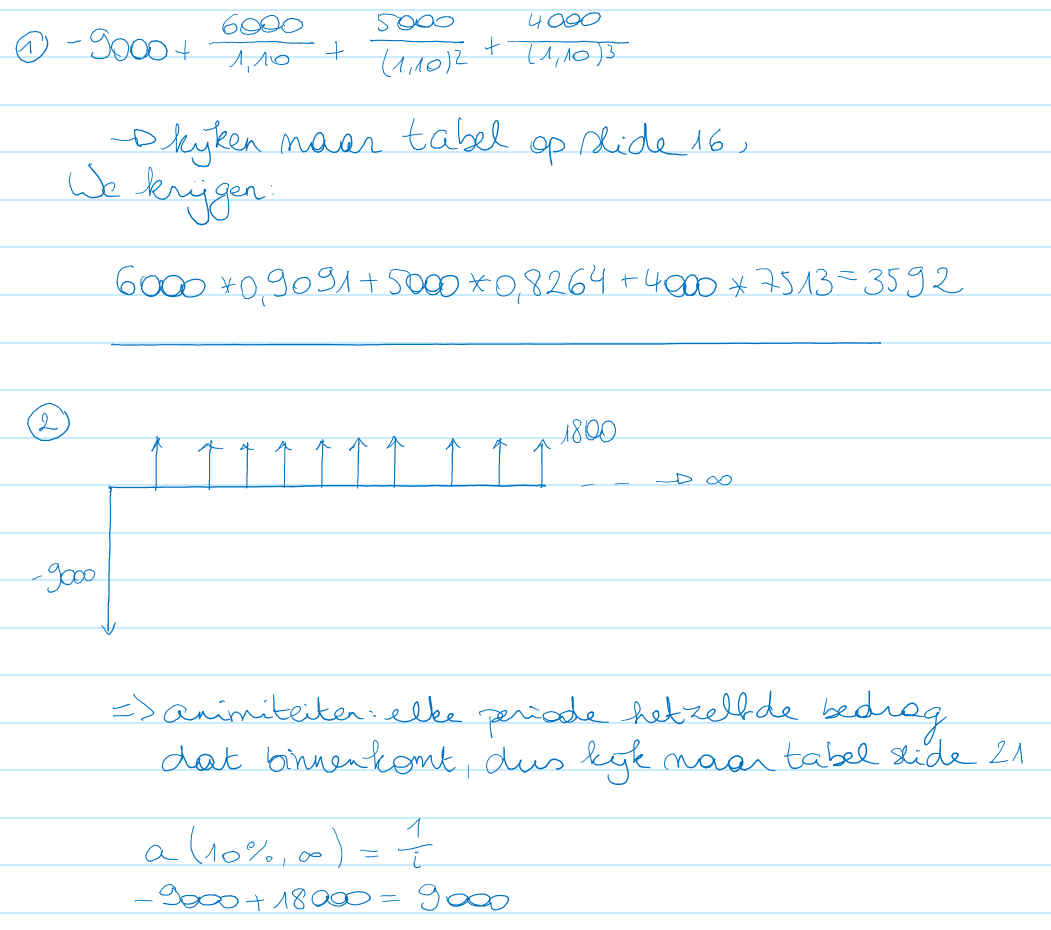 ① -9000 + 6000/1,10 + 5000/(1,10)² + 4000/(1,10)³
→ kijken naar tabel op slide 16,
We krijgen:
6000 * 0,9091 + 5000 * 0,8264 + 4000 * 7513 = 3592
②
1800
→ ∞
-9000
=> animiteiten: elke periode hetzelfde bedrag
dat binnenkomt, dus kijk naar tabel slide 21
a (10%, ∞) = 1/i
-9000 + 18000 = 9000